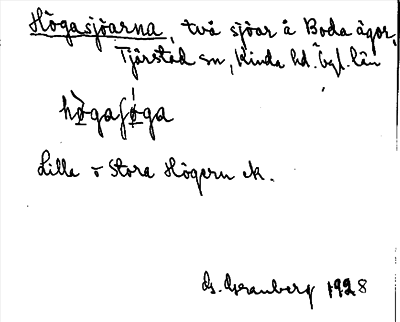 Högasjöarna, två sjöar å Boda ägor,
Tjärstad sn, Kinda hd. Ögl. län
hö̀gaʃö́ga
Lilla o Stora Högern ek.
G. Granberg 1928